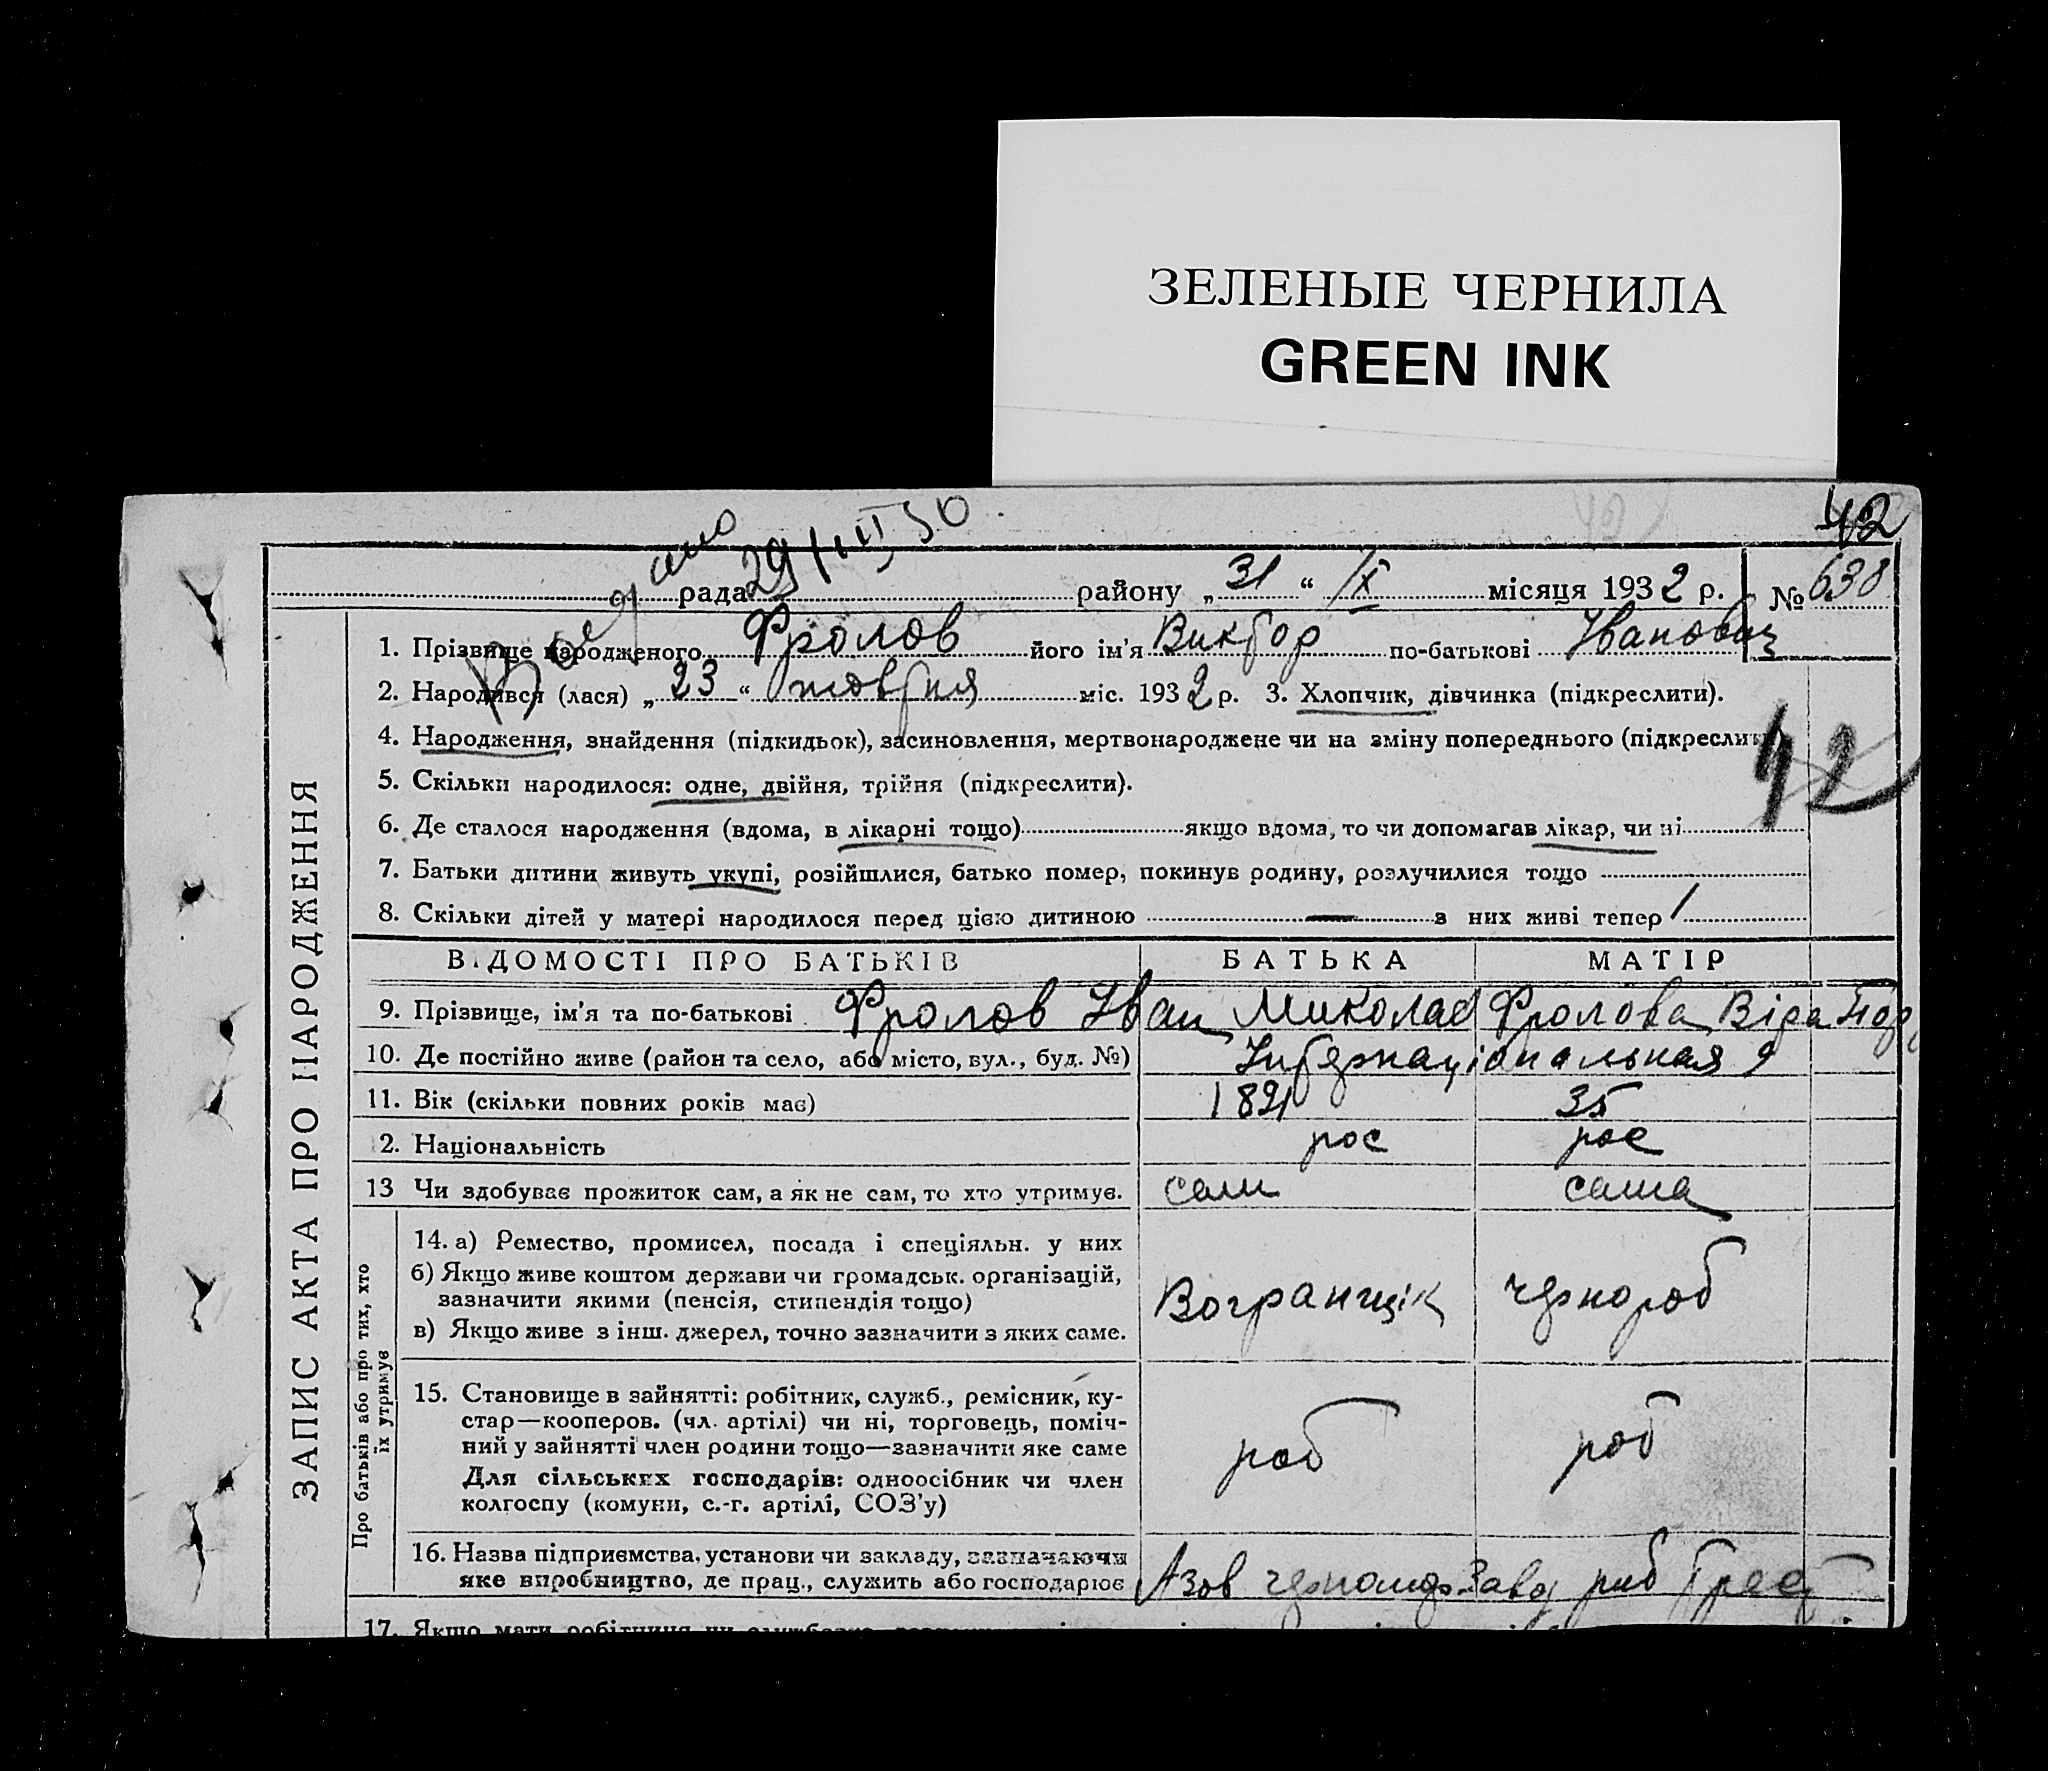 ЗЕЛЕНЫЕ ЧЕРНИЛА
GREEN INK
42
29
рада району „31“ IX місяця 1932 р. № 638
1. Прізвище народженого Фролов його ім'я Виктор по-батькові Іванович
2. Народився (лася) „23“ жовтня міс. 1932 р. 3. Хлопчик, дівчинка (підкреслити).
4. Народження, знайдення (підкидьок), засиновлення, мертвонароджене чи на зміну попереднього (підкреслити)
42
5. Скільки народилося: одне, двійня, трійня (підкреслити).
6. Де сталося народження (вдома, в лікарні тощо) якщо вдома, то чи допомагав лікар, чи ні
7. Батьки дитини живуть укупі, розійшлися, батько помер, покинув родину, розлучилися тощо
8. Скільки дітей у матері народилося перед цією дитиною — з них живі тепер 1
ЗАПИС АКТА ПРО НАРОДЖЕННЯ
ВІДОМОСТІ ПРО БАТЬКІВ БАТЬКА МАТІР
9. Прізвище, ім'я та по-батькові Фролов Іван Миколає Фролова Віра
10. Де постійно живе (район та село, або місто, вул., буд. №) Інтернаціональная 9
11. Вік (скільки повних років має) 1891 35
2. Національність рос рос
13 Чи здобуває прожиток сам, а як не сам, то хто утримує. сам сама
Про батьків або про тих, хто
їх утримує
14. а) Ремество, промисел, посада і спеціяльн. у них
б) Якщо живе коштом держави чи громадськ. організацій,
зазначити якими (пенсія, стипендія тощо)
в) Якщо живе з інш. джерел, точно зазначити з яких саме.
Вогранщік чернороб
15. Становище в зайнятті: робітник, служб., ремісник, ку-
стар—кооперов. (чл. артілі) чи ні, торговець, поміч-
ний у зайнятті член родини тощо—зазначити яке саме
Для сільських господарів: одноосібник чи член
колгоспу (комуни, с.-г. артілі, СОЗ'у)
роб роб
16. Назва підприємства, установи чи закладу, зазначаючи
яке виробництво, де прац., служить або господарює Азов
17. Якщо мати робітниця чи